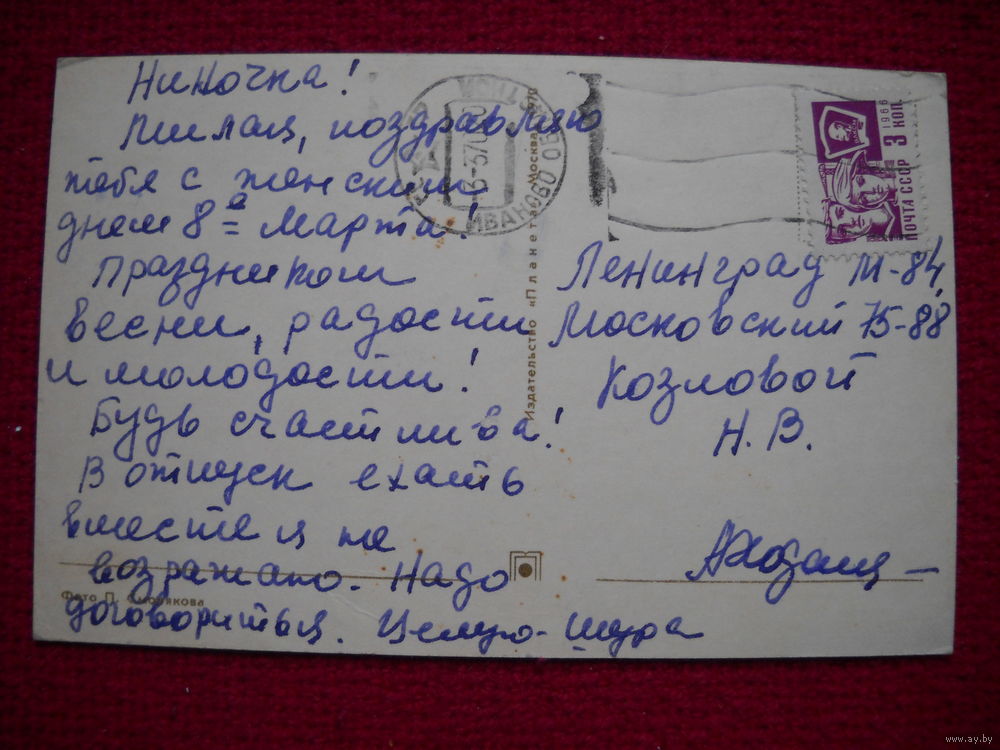 Ниночка!
Милая, поздравляю
тебя с женским
днем 8а = Марта!
Праздником
весны, радости
и молодости!
Будь счастлива!
В отпуск ехать
вместе я не
возражаю. Надо
договориться. Целую - Шура
Ленинград М-84,
Московский 75-88
Козловой
Н. В.
Издательство «Планета» Москва
Фото П. Смолякова
ИВАНОВО ОБЛ
1966
3 КОП.
ПОЧТА СССР
www.ay.by